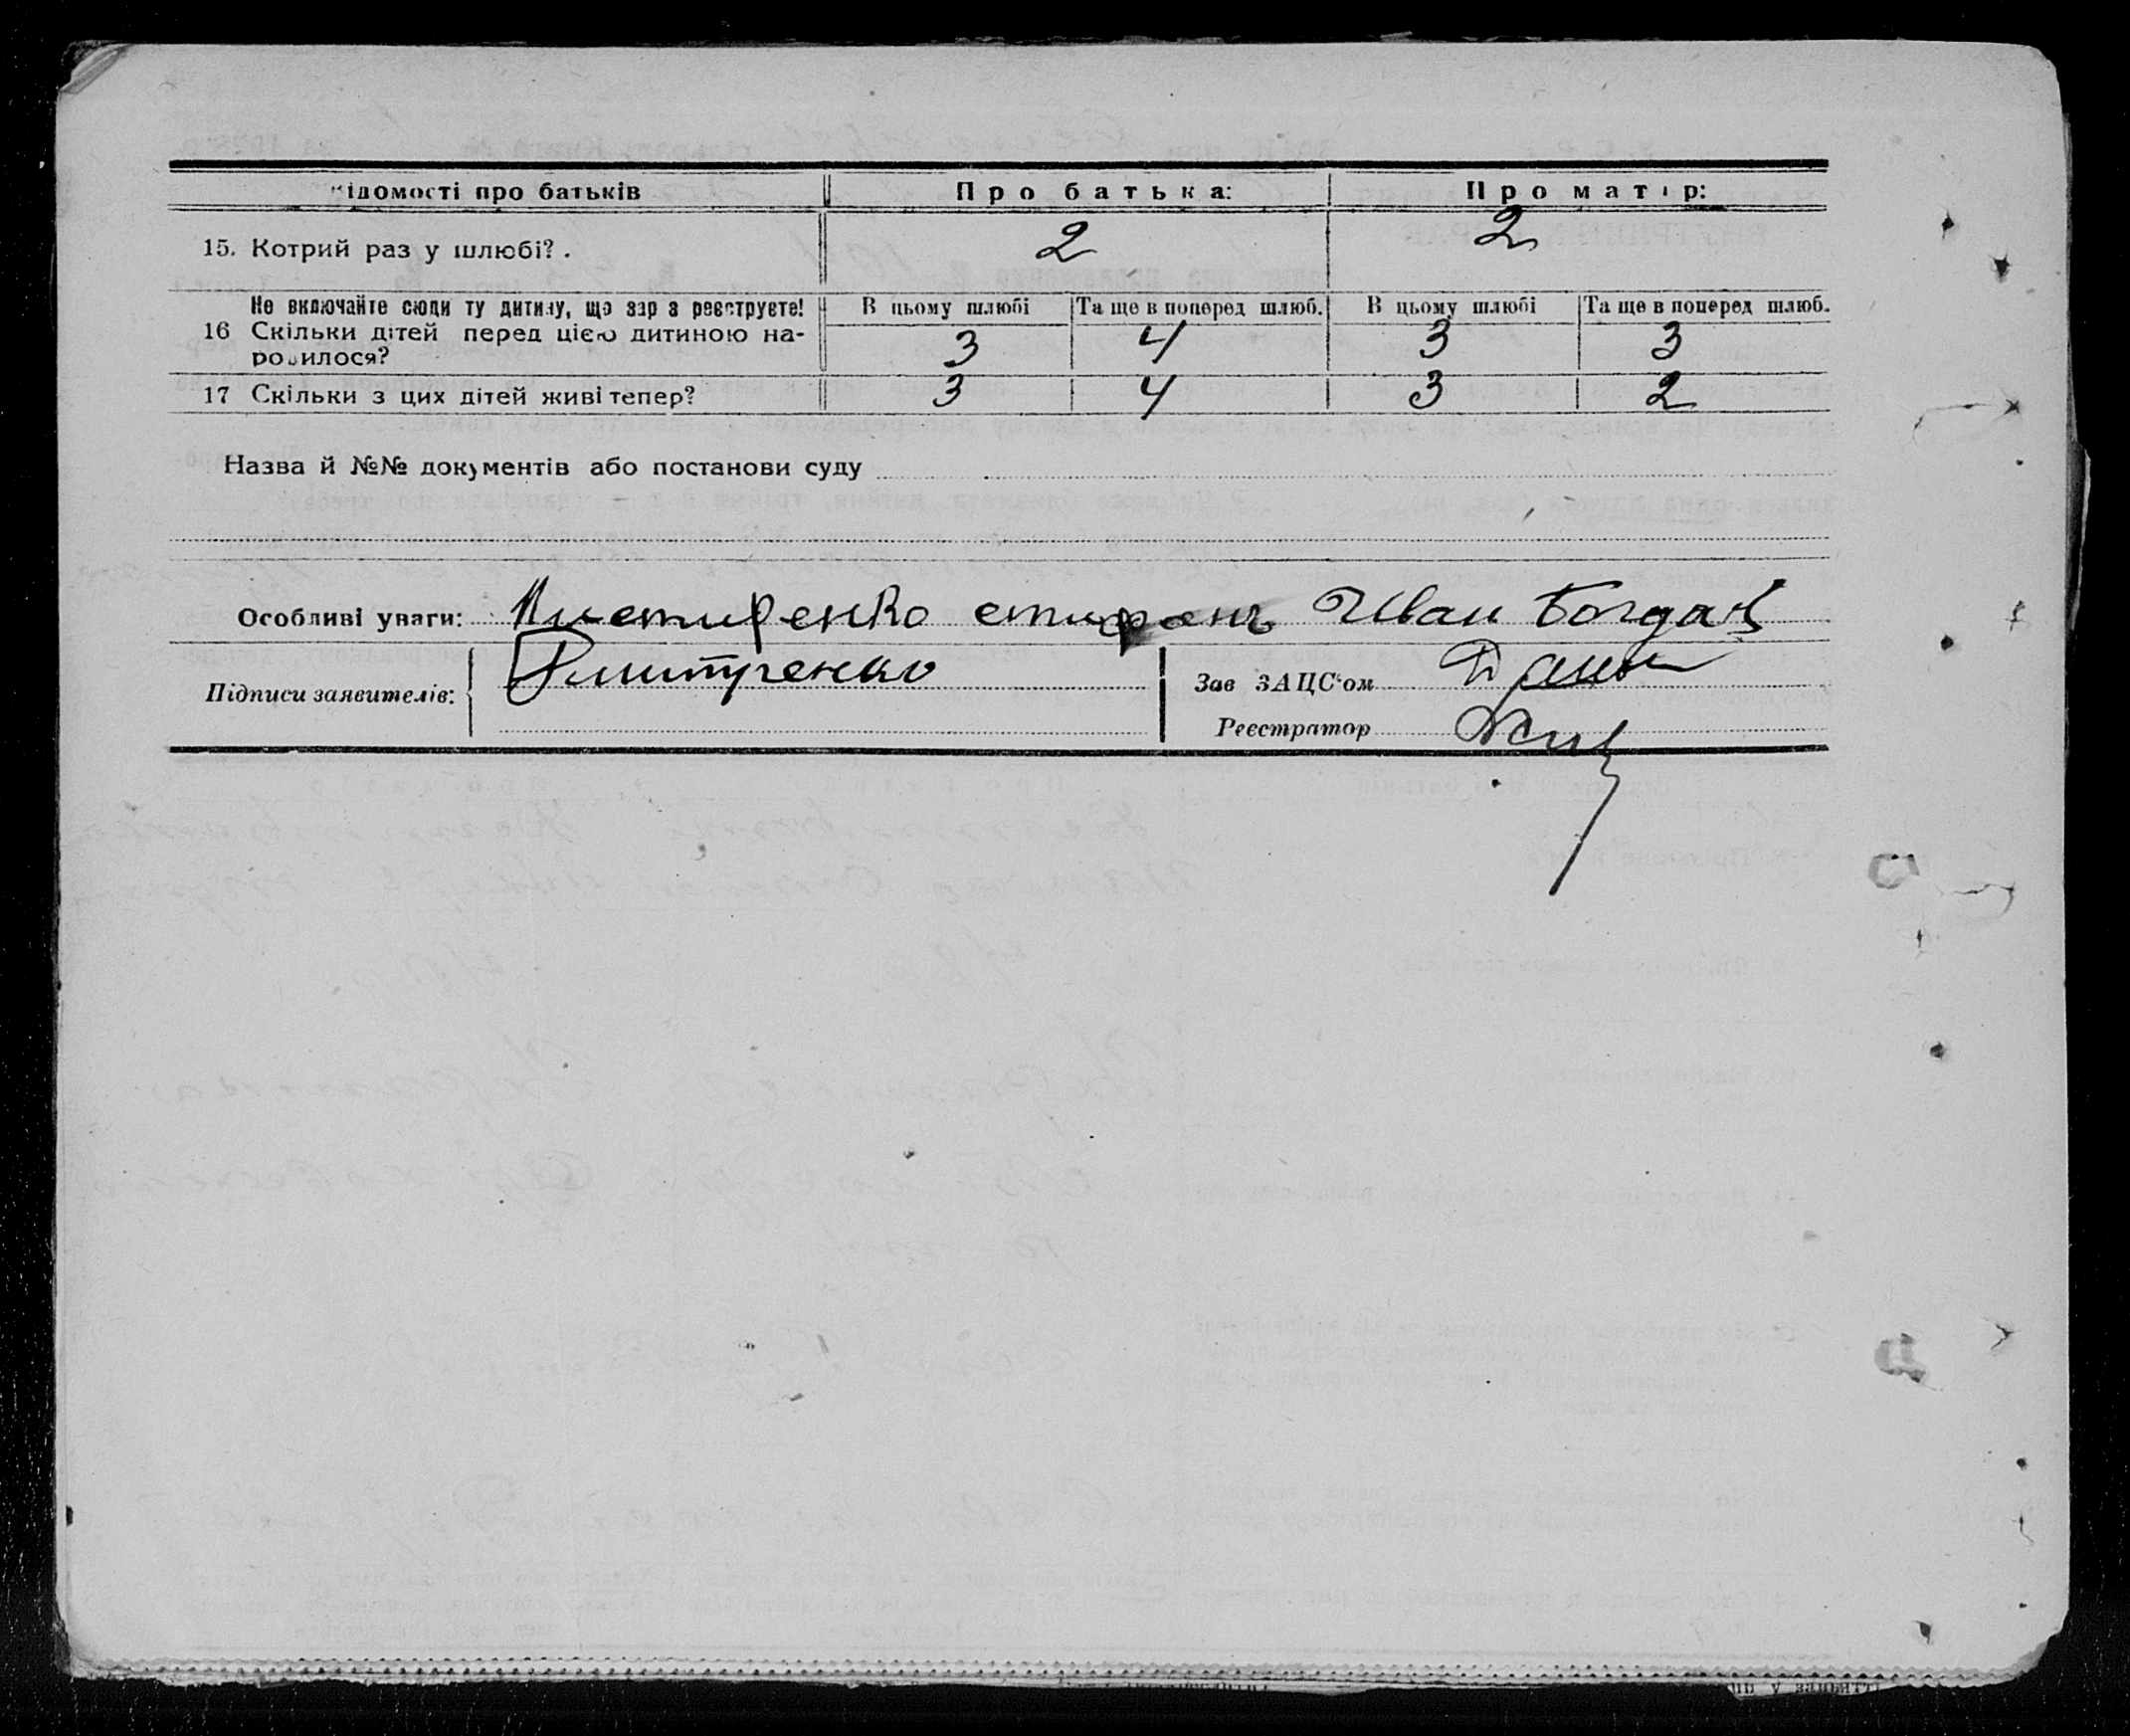 ідомості про батьків Про батька: Про матір:
15. Котрий раз у шлюбі? . 2 2
Не включайте сюди ту дитину, що зар з реєструєте! В цьому шлюбі Та ще в поперед шлюб. В цьому шлюбі Та ще в поперед шлюб.
16 Скільки дітей перед цією дитиною на- 3 4 3 3
родилося?
17 Скільки з цих дітей живі тепер? 3 4 3 2
Назва й №№ документів або постанови суду
Особливі уваги: Иван Богдан
Підписи заявителів: Дмитренко Зав ЗАЦС'ом
Реєстратор